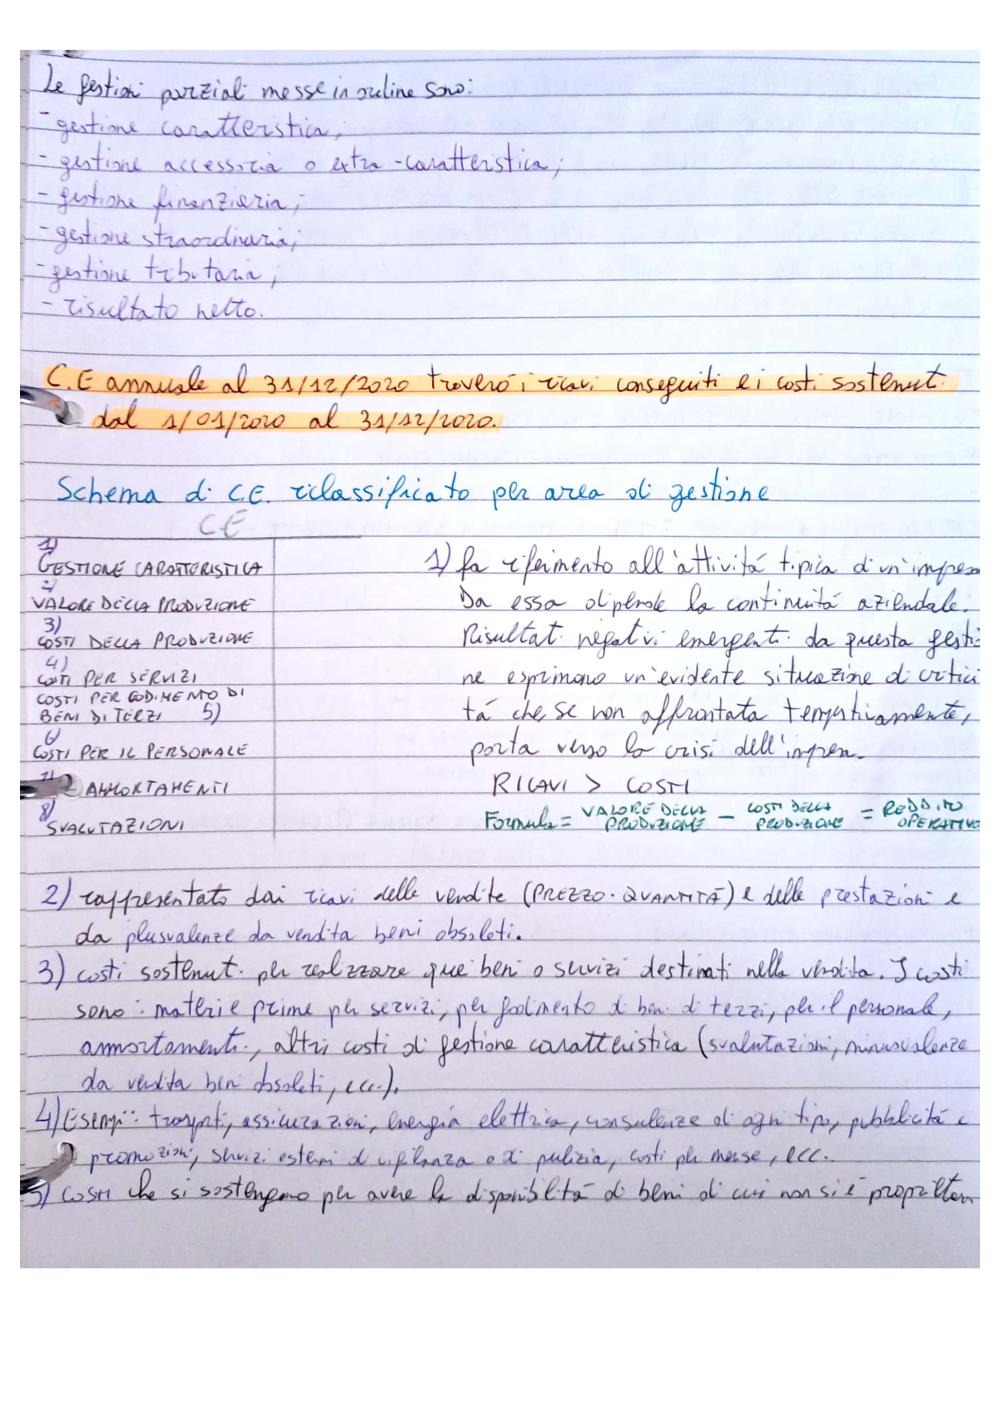 Le gestioni parziali messe in ordine sono:
- gestione caratteristica;
- gestione accessoria o extra-caratteristica;
- gestione finanziaria;
- gestione straordinaria;
- gestione tributaria;
- risultato netto.
C.E annuale al 31/12/2020 troverò i ricavi conseguiti e i costi sostenuti
dal 1/01/2020 al 31/12/2020.
Schema di C.E. riclassificato per area di gestione
CE
1)
GESTIONE CARATTERISTICA
2)
VALORE DELLA PRODUZIONE
3)
COSTI DELLA PRODUZIONE
4)
COSTI PER SERVIZI
COSTI PER GODIMENTO DI
BENI DI TERZI 5)
6)
COSTI PER IL PERSONALE
7)
AMMORTAMENTI
8)
SVALUTAZIONI
1) fa riferimento all'attivitá tipica di un'impresa
Da essa dipende la continuitá aziendale.
Risultati negativi emergenti da questa gestio
ne esprimono un'evidente situazione di critici
tá che, se non affrontata tempestivamente,
porta verso la crisi dell'impresa.
RICAVI > COSTI
Formula = VALORE DELLA PRODUZIONE - COSTI DELLA PRODUZIONE = REDDITO OPERATIVO
2) rappresentato dai ricavi delle vendite (PREZZO · QUANTITÁ) e delle prestazioni e
da plusvalenze da vendita beni obsoleti.
3) costi sostenuti per realizzare que beni o servizi destinati nella vendita. I costi
sono: materie prime per servizi, per godimento di beni di terzi, per il personale,
ammortamenti, altri costi di gestione caratteristica (svalutazioni, minusvalenze
da vendita beni obsoleti, ecc.).
4) Esempi: trasporti, assicurazioni, energia elettrica, consulenze di ogni tipo, pubblicitá e
promozioni, servizi esterni di vigilanza e di pulizia, costi per mense, ecc.
5) costi che si sostengono per avere la disponibilitá di beni di cui non si é proprietari